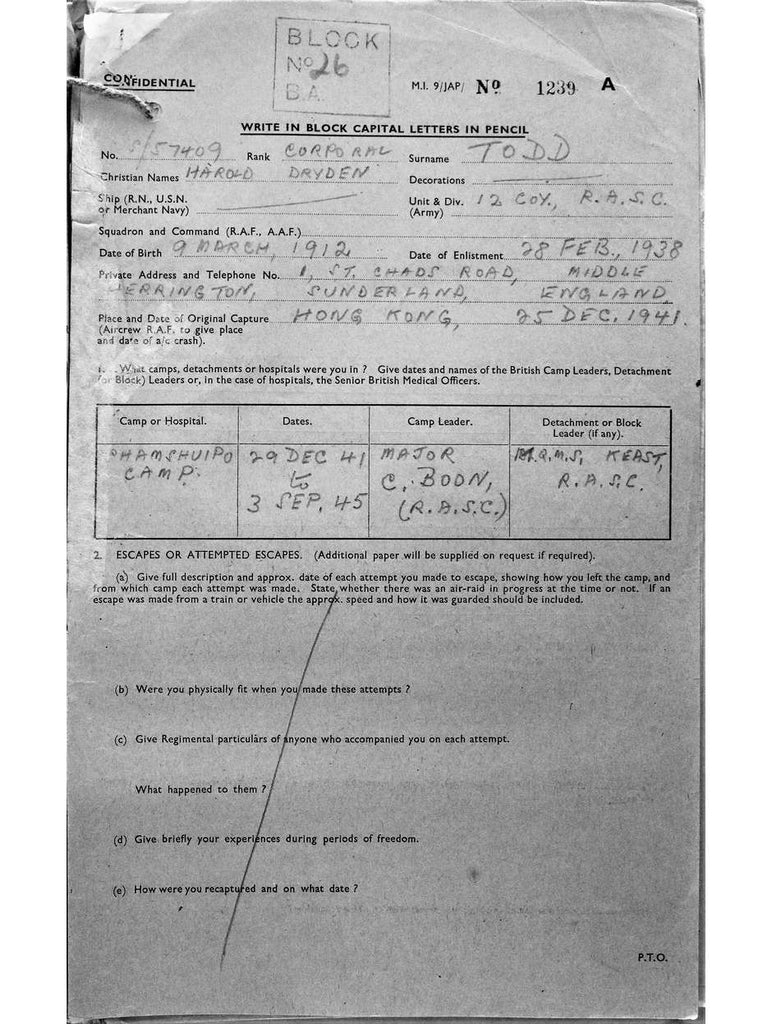 BLOCK
Nº 26
B.A.
CONFIDENTIAL
M.I. 9/JAP/ Nº 1239 A
WRITE IN BLOCK CAPITAL LETTERS IN PENCIL
No. S/57409 Rank CORPORAL Surname TODD
Christian Names HAROLD DRYDEN Decorations
Ship (R.N., U.S.N. or Merchant Navy) Unit & Div. (Army) 12 COY., R.A.S.C.
Squadron and Command (R.A.F., A.A.F.)
Date of Birth 9 MARCH, 1912 Date of Enlistment 28 FEB., 1938
Private Address and Telephone No. 1, ST. CHADS ROAD, MIDDLE
HERRINGTON, SUNDERLAND, ENGLAND
Place and Date of Original Capture HONG KONG, 25 DEC. 1941.
(Aircrew R.A.F. to give place
and date of a/c crash).
1. What camps, detachments or hospitals were you in ? Give dates and names of the British Camp Leaders, Detachment
(or Block) Leaders or, in the case of hospitals, the Senior British Medical Officers.
Camp or Hospital. Dates. Camp Leader. Detachment or Block Leader (if any).
SHAMSHUIPO 29 DEC 41 MAJOR KEAST,
CAMP. to C. BOON, R.A.S.C.
3 SEP. 45 (R.A.S.C.)
2. ESCAPES OR ATTEMPTED ESCAPES. (Additional paper will be supplied on request if required).
(a) Give full description and approx. date of each attempt you made to escape, showing how you left the camp, and
from which camp each attempt was made. State whether there was an air-raid in progress at the time or not. If an
escape was made from a train or vehicle the approx. speed and how it was guarded should be included.
(b) Were you physically fit when you made these attempts ?
(c) Give Regimental particulars of anyone who accompanied you on each attempt.
What happened to them ?
(d) Give briefly your experiences during periods of freedom.
(e) How were you recaptured and on what date ?
P.T.O.